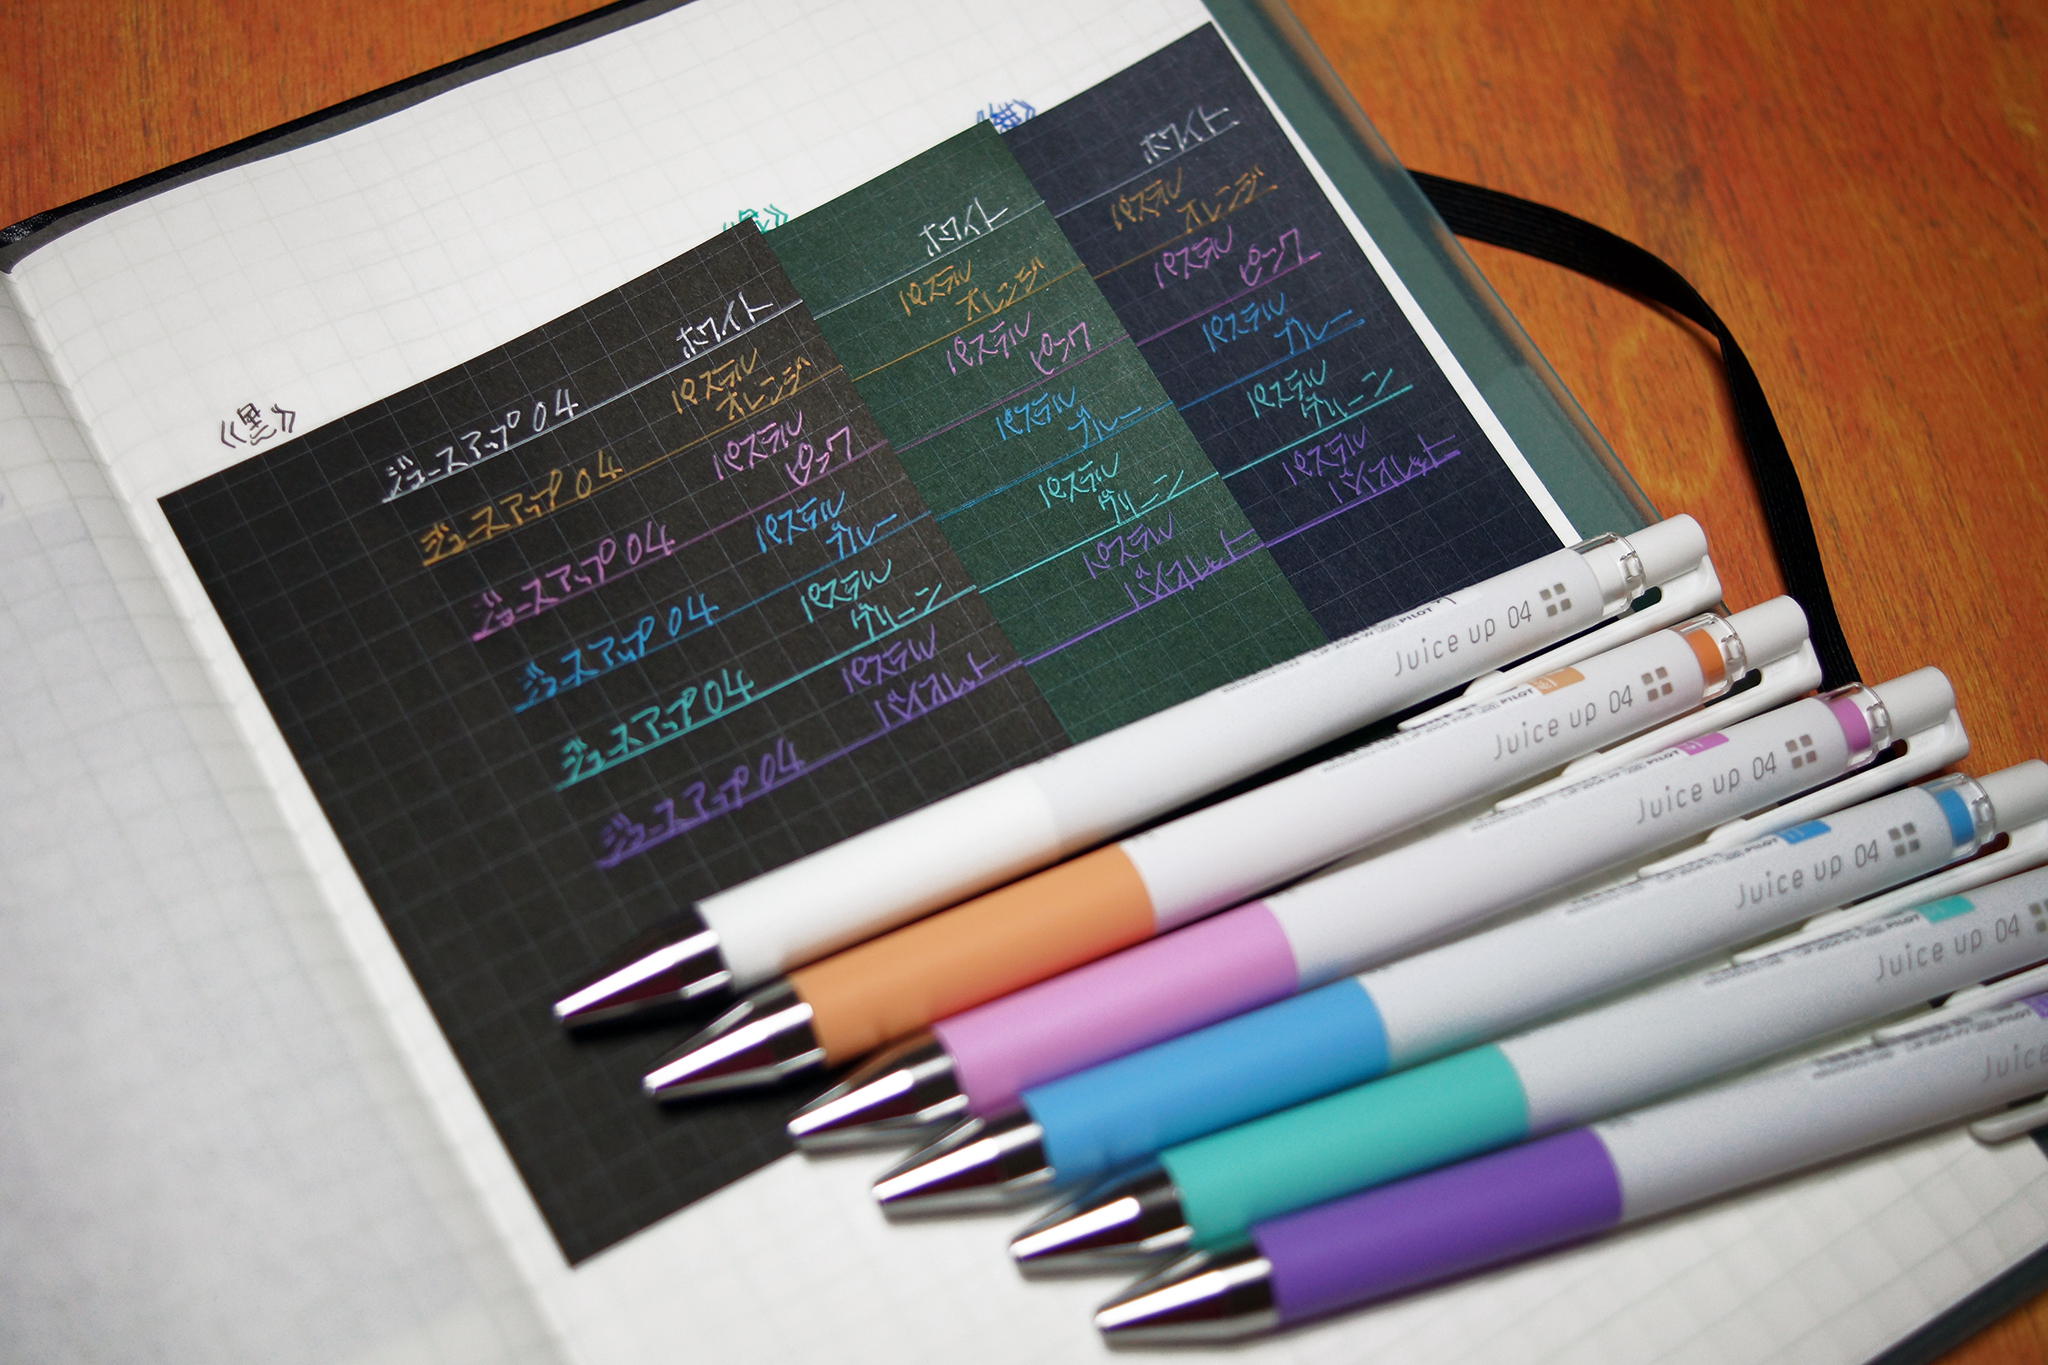 《黒》
ジュースアップ04 ホワイト
ジュースアップ04 パステル
オレンジ
ジュースアップ04 パステル
ピンク
ジュースアップ04 パステル
ブルー
ジュースアップ04 パステル
グリーン
ジュースアップ04 パステル
バイオレット
ホワイト
パステル
オレンジ
パステル
ピンク
パステル
ブルー
パステル
グリーン
パステル
バイオレット
ホワイト
パステル
オレンジ
パステル
ピンク
パステル
ブルー
パステル
グリーン
パステル
バイオレット
PILOT Juice up 04
PILOT Juice up 04
PILOT Juice up 04
PILOT Juice up 04
PILOT Juice up 04
PILOT Juice